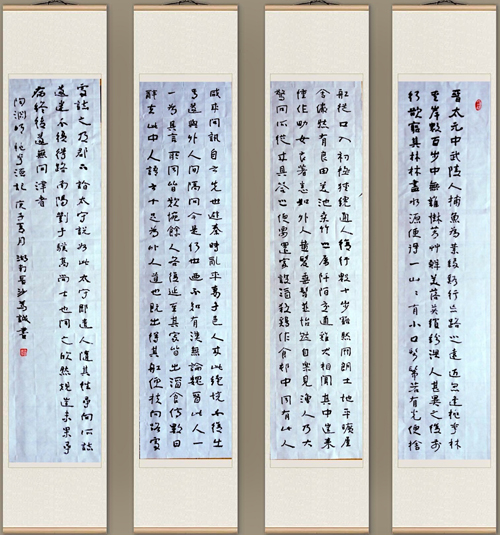 晉太元中武陵人捕魚為業緣溪行忘路之遠近忽逢桃花林
夾岸數百步中無雜樹芳草鮮美落英繽紛漁人甚異之復前
行欲窮其林林盡水源便得一山山有小口髣髴若有光便捨
船從口入初極狹纔通人復行數十步豁然開朗土地平曠屋
舍儼然有良田美池桑竹之屬阡陌交通雞犬相聞其中往來
種作男女衣著悉如外人黃髮垂髫並怡然自樂見漁人乃大
驚問所從來具答之便要還家設酒殺雞作食村中聞有此人
咸來問訊自云先世避秦時亂率妻子邑人來此絕境不復出
焉遂與外人間隔問今是何世乃不知有漢無論魏晉此人一
一為具言所聞皆歎惋餘人各復延至其家皆出酒食停數日
辭去此中人語云不足為外人道也既出得其船便扶向路處
處誌之及郡下詣太守說如此太守即遣人隨其往尋向所誌
遂迷不復得路南陽劉子驥高尚士也聞之欣然規往未果尋
病終後遂無問津者
陶淵明 桃花源記 庚子夏月 湖南長沙 書